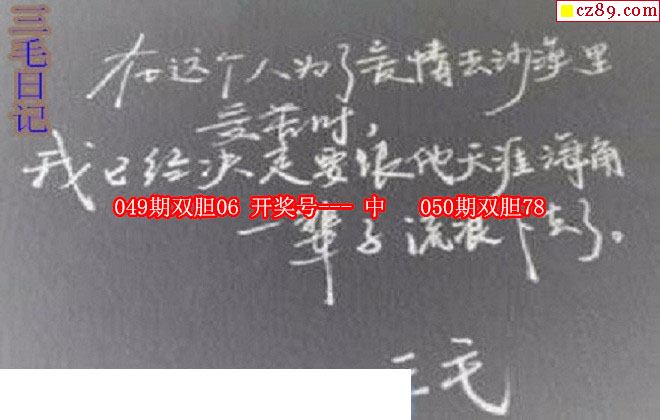 cz89.com
三毛日记
在这个人为了爱情去沙漠里
受苦时,
我已经决定要跟他天涯海角
049期双胆06 开奖号--- 中 050期双胆78
一辈子流浪下去了。
三毛